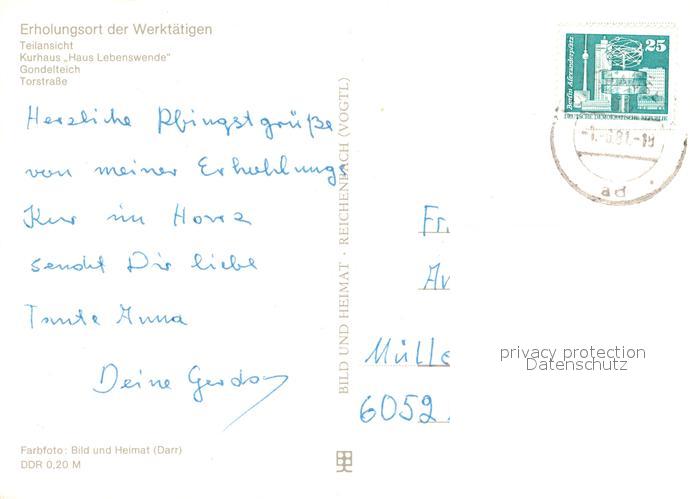 Erholungsort der Werktätigen
Teilansicht
Kurhaus „Haus Lebenswende“
Gondelteich
Torstraße
Herzliche Pfingstgrüße
von meiner Erhohlungs
Kur im
sendet Dir liebe
Tante Anna
Deine
Farbfoto: Bild und Heimat (Darr)
DDR 0,20 M
BILD UND HEIMAT · REICHENBACH (VOGTL)
25
Berlin Alexanderplatz
DEUTSCHE DEMOKRATISCHE REPUBLIK
ad
Fr.
Mülle
6052
privacy protection
Datenschutz